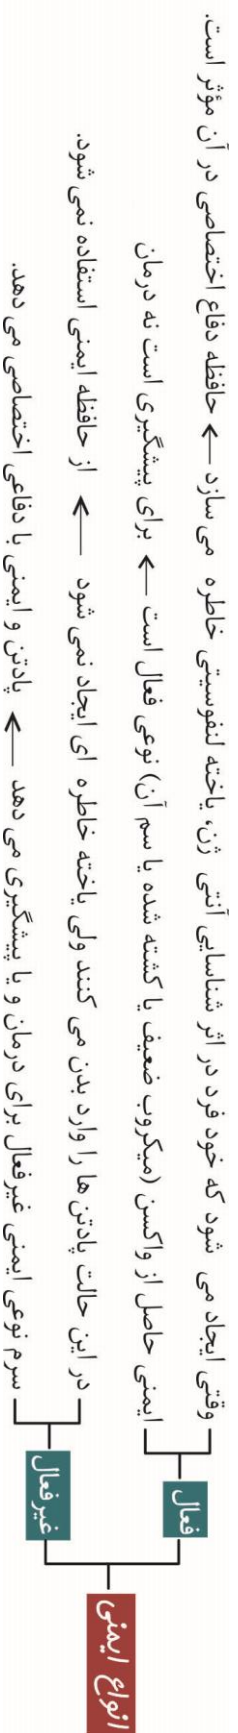 انواع ایمنی
فعال
وقتی ایجاد می شود که خود فرد در اثر شناسایی آنتی ژن، یاخته لنفوسیتی خاطره می سازد ← حافظه دفاع اختصاصی در آن مؤثر است.
ایمنی حاصل از واکسن (میکروب ضعیف یا کشته شده یا سم آن) نوعی فعال است ← برای پیشگیری است نه درمان
غیرفعال
در این حالت پادتن ها را وارد بدن می کنند ولی یاخته خاطره ای ایجاد نمی شود ← از حافظه ایمنی استفاده نمی شود.
سرم نوعی ایمنی غیرفعال برای درمان و یا پیشگیری می دهد ← پادتن و ایمنی با دفاعی اختصاصی می دهد.